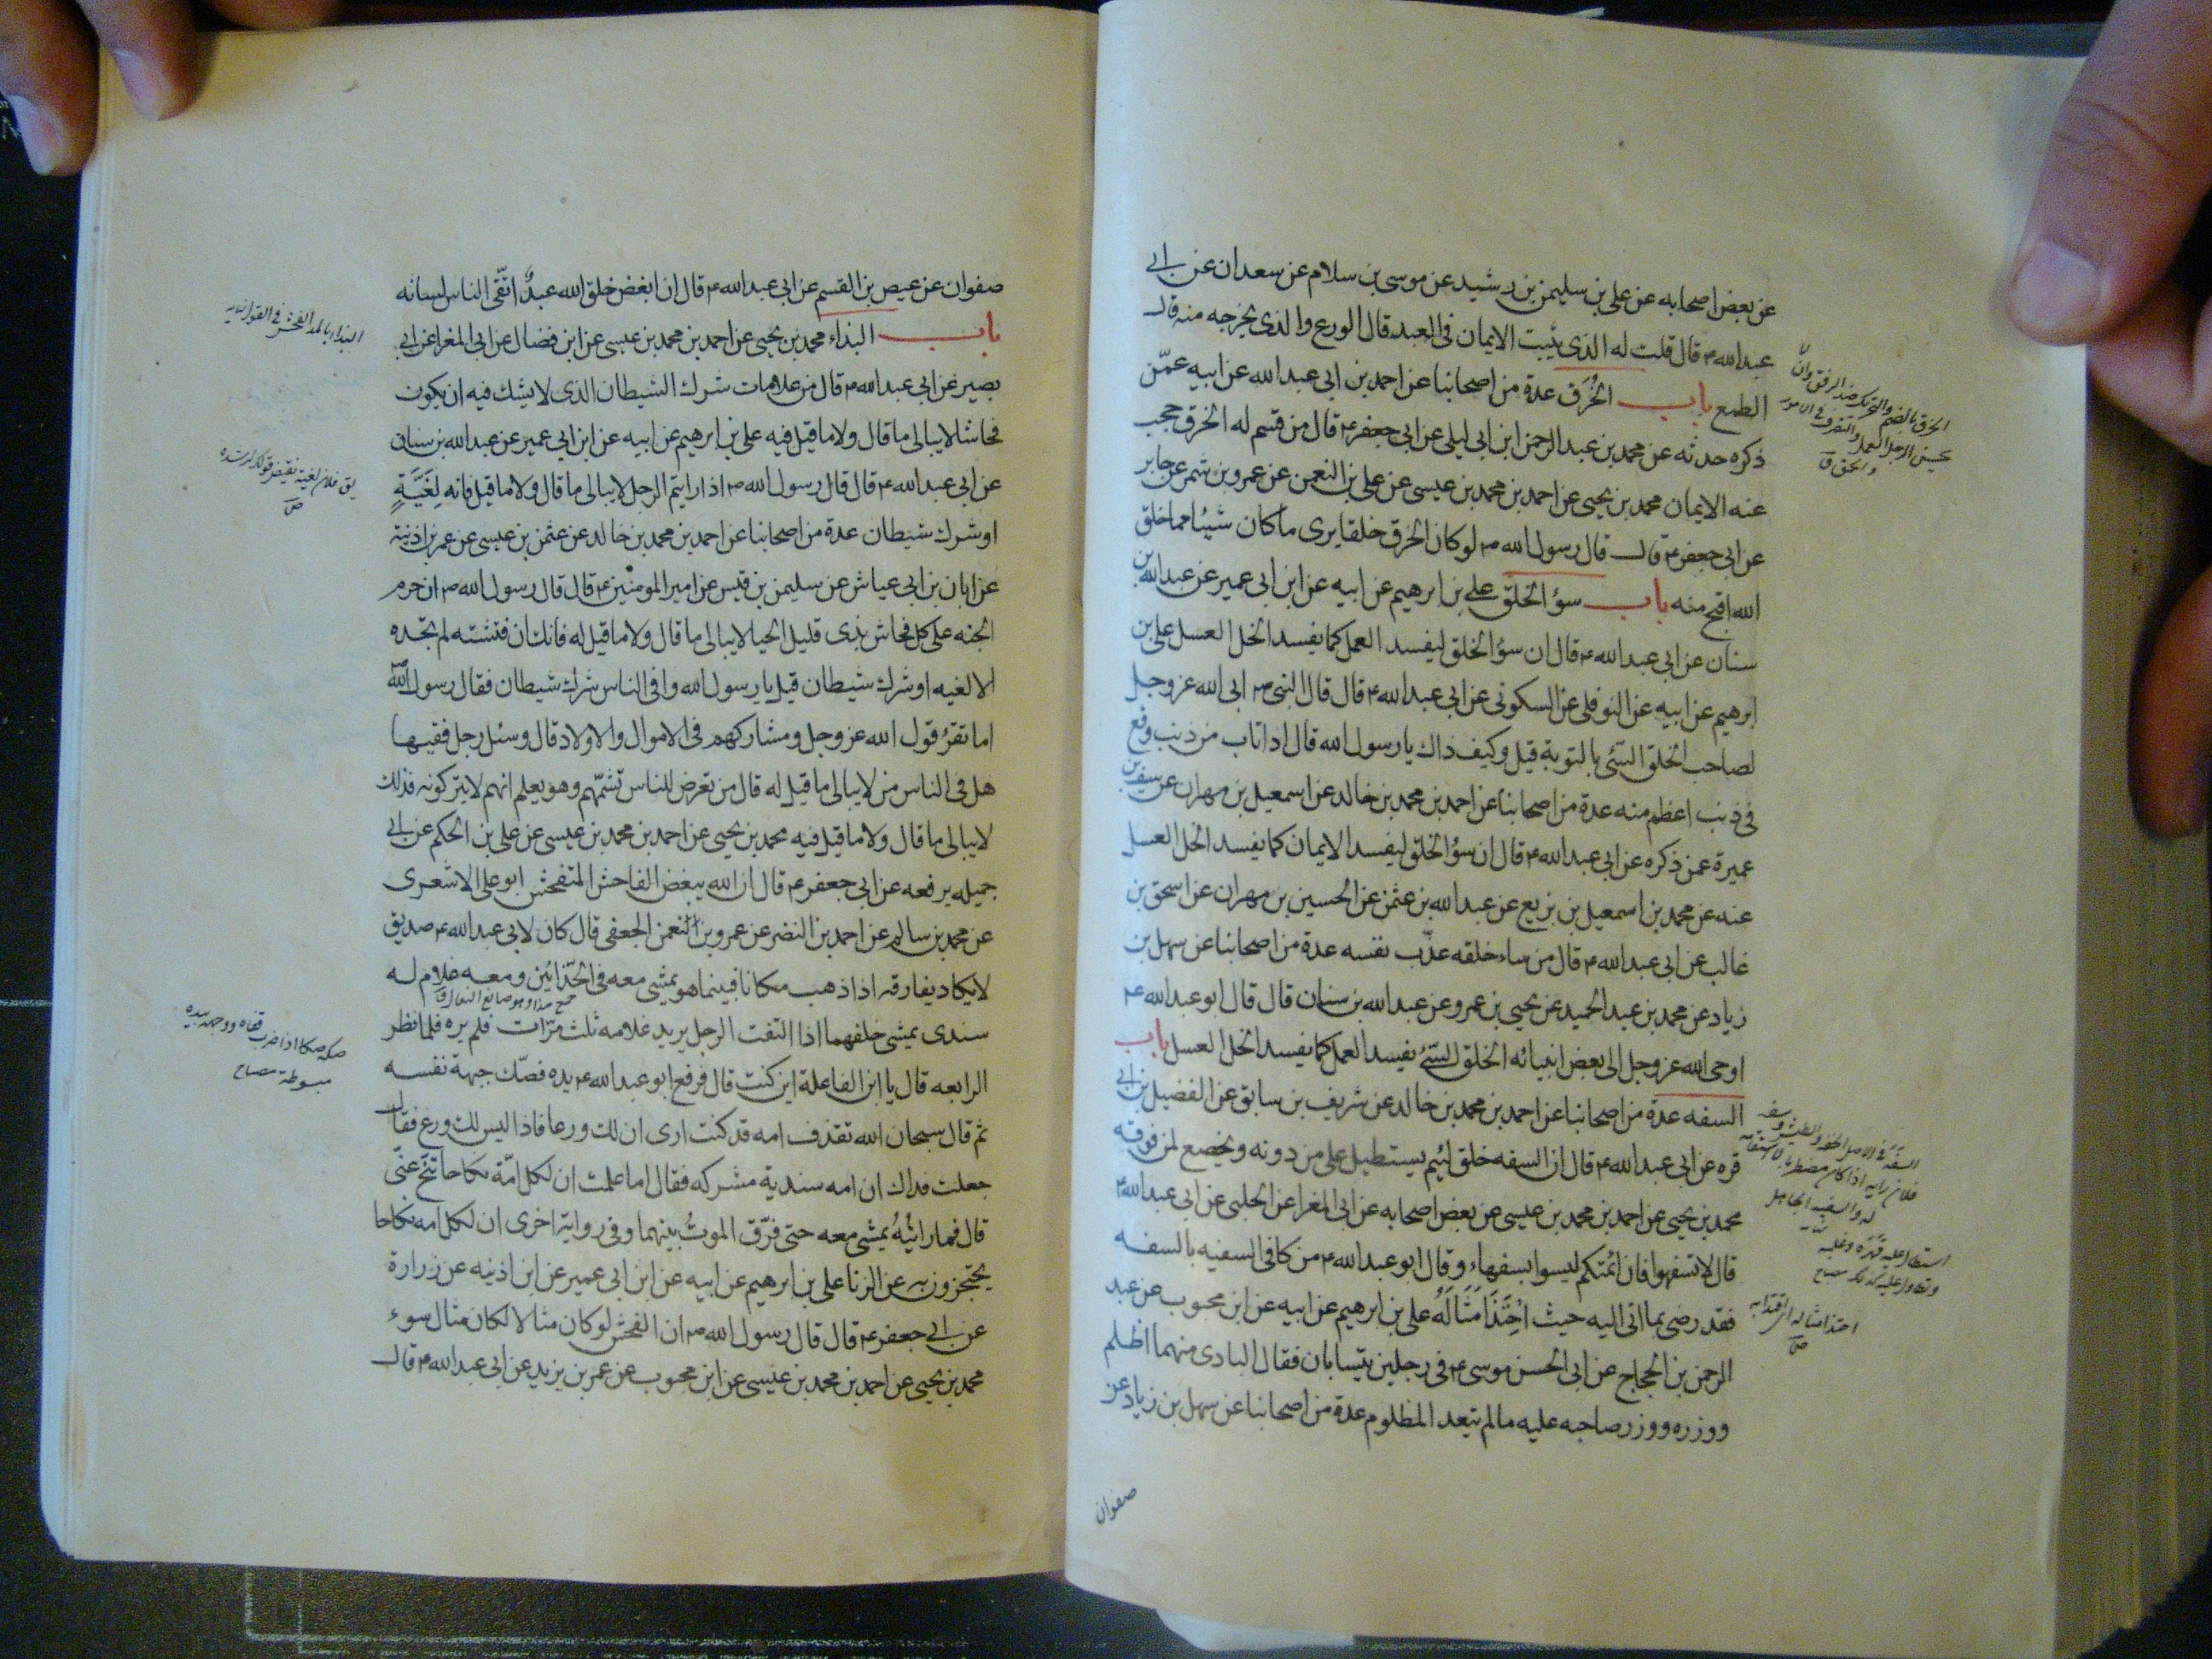 عن بعض اصحابه عن علي بن سليمن بن رشيد عن موسى بن سلام عن سعدان عن ابي
عبد الله ع قال قلت له الذى يثبت الايمان في العبد قال الورع والذى يخرجه منه قال
الطمع باب الخُرق عدة من اصحابنا عن احمد بن ابي عبد الله عن ابيه عمّن
ذكره حدثه عن محمد بن عبد الرحمن ابن ابي ليلى عن ابي جعفر ع قال من قسم له الخرق حجب
عنه الايمان محمد بن يحيى عن احمد بن محمد بن عيسى عن علي بن النعمن عن عمرو بن شمر عن جابر
عن ابي جعفر ع قال قال رسول الله ص لو كان الخرق خلقا يرى ما كان شيئا مما خلق
الله اقبح منه باب سوء الخلق علي بن ابرهيم عن ابيه عن ابن ابي عمير عن عبد الله بن
سنان عن ابي عبد الله ع قال ان سوء الخلق ليفسد العمل كما يفسد الخل العسل علي بن
ابرهيم عن ابيه عن النوفلي عن السكوني عن ابي عبد الله ع قال قال النبي ص ابى الله عز وجل
لصاحب الخلق السيّئ بالتوبة قيل وكيف ذاك يا رسول الله قال اذا تاب من ذنب وقع
فى ذنب اعظم منه عدة من اصحابنا عن احمد بن محمد بن خالد عن اسمعيل بن مهران عن سيف بن
عميرة عمن ذكره عن ابي عبد الله ع قال ان سوء الخلق ليفسد الايمان كما يفسد الخل العسل
عنه عن محمد بن اسمعيل بن بزيع عن عبد الله بن عثمن عن الحسين بن مهران عن اسحق بن
غالب عن ابي عبد الله ع قال من ساء خلقه عذّب نفسه عدة من اصحابنا عن سهل بن
زياد عن محمد بن عبد الحميد عن يحيى بن عمرو عن عبد الله بن سنان قال قال ابو عبد الله ع
اوحى الله عز وجل الى بعض انبيائه الخلق السيّئ يفسد العمل كما يفسد الخل العسل باب
السفه عدة من اصحابنا عن احمد بن محمد بن خالد عن شريف بن سابق عن الفضيل بن ابي
قره عن ابي عبد الله ع قال ان السفه خلق لئيم يستطيل على من دونه ويخضع لمن فوقه
محمد بن يحيى عن احمد بن محمد بن عيسى عن بعض اصحابه عن ابي المغرا عن الحلبي عن ابي عبد الله ع
قال لا تسفهوا فان ائمتكم ليسوا بسفهاء وقال ابو عبد الله ع من كافى السفيه بالسفه
فقد رضى بما اتى اليه حيث احْتَذَا مَثَالَهُ علي بن ابرهيم عن ابيه عن ابن محبوب عن عبد
الرحمن بن الحجاج عن ابي الحسن موسى ع فى رجلين يتسابان فقال البادى منهما اظلم
ووزره ووزر صاحبه عليه ما لم يتعد المظلوم عدة من اصحابنا عن سهل بن زياد عن
صفوان
الخرق بالضم والتحريك ضد الرفق وان
لا يحسن الرجل العمل والتصرف فى الامور
والحمق ق
السفه فى الاصل الخفة والطيش وسفه
فلان رايه اذا كان مضطربا لا استقامة
له والسفيه الجاهل
استطال عليه قهره وغلبه
وتطاول عليه كذلك مصباح
احتذا مثاله اى اقتدا به
ص
صفوان عن عيص بن القسم عن ابي عبد الله ع قال ان ابغض خلق الله عبدٌ اتّقى الناس لسانه
باب البذاء محمد بن يحيى عن احمد بن محمد بن عيسى عن ابن فضال عن ابي المغرا عن ابي
بصير عن ابي عبد الله ع قال من علامات شرك الشيطان الذى لا يشك فيه ان يكون
فحاشا لا يبالى ما قال ولا ما قيل فيه علي بن ابرهيم عن ابيه عن ابن ابي عمير عن عبد الله بن سنان
عن ابي عبد الله ع قال قال رسول الله ص اذا رايتم الرجل لا يبالى ما قال ولا ما قيل فانه لِغَيَّةٍ
او شرك شيطان عدة من اصحابنا عن احمد بن محمد بن خالد عن عثمن بن عيسى عن عمر بن اذينة
عن ابان بن ابي عياش عن سليمن بن قيس عن امير المومنين ع قال قال رسول الله ص ان حرم
الجنه على كل فحاش بذى قليل الحيا لا يبالى ما قال ولا ما قيل له فانك ان فتشته لم تجده
الا لغيه او شرك شيطان قيل يا رسول الله وافى الناس شرك شيطان فقال رسول الله ص
اما تقرؤ قول الله عز وجل ومشاركهم فى الاموال والاولاد قال وسئل رجل فقيها
هل فى الناس من لا يبالى ما قيل له قال من تعرض للناس تشتمهم وهو يعلم انهم لا يتركونه فذلك
لا يبالى ما قال ولا ما قيل فيه محمد بن يحيى عن احمد بن محمد بن عيسى عن علي بن الحكم عن ابي
جميله يرفعه عن ابي جعفر ع قال ان الله يبغض الفاحش المتفحش ابو علي الاشعرى
عن محمد بن سالم عن احمد بن النضر عن عمرو بن النعمن الجعفى قال كان لابي عبد الله ع صديق
لا يكاد يفارقه اذا ذهب مكانا فبينما هو يمشى معه فى الحذّائين ومعه غلام له
جمع حذا وهو صانع النعال ق
سندى يمشى خلفهما اذا التفت الرجل يريد غلامه ثلث مرّات فلم يره فلما نظر
الرابعه قال يا ابن الفاعلة اين كنت قال فرفع ابو عبد الله ع يده فصك جبهة نفسه
ثم قال سبحان الله تقذف امه قد كنت ارى ان لك ورعا فاذا ليس لك ورع فقال
جعلت فداك ان امه سندية مشركه فقال اما علمت ان لكل امّة نكاحا تنحّ عنّى
قال فما رايتُهُ يمشى معه حتى فرّق الموتُ بينهما وفى رواية اخرى ان لكل امه نكاحا
يحتجزون به عن الزنا علي بن ابرهيم عن ابيه عن ابن ابي عمير عن ابن اذينه عن زرارة
عن ابي جعفر ع قال قال رسول الله ص ان الفحش لو كان مثالا لكان مثال سوء
محمد بن يحيى عن احمد بن محمد بن عيسى عن ابن محبوب عن عمر بن يزيد عن ابي عبد الله ع قال
البذاء بالمد الفحش فى القول نهايه
يق فلان لغية نقيض قولك لرشده
ص
صكه صكا اذا ضرب قفاه ووجهه بيده
مبسوطة مصباح